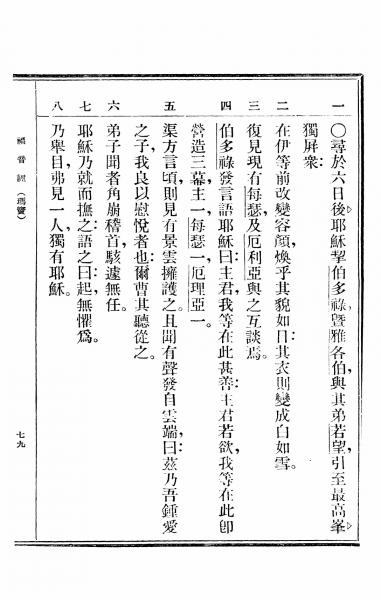 一 ○尋於六日後耶穌挈伯多祿暨雅各伯與其弟若望引至最高峯
獨屏衆
二 在伊等前改變容顏煥乎其貌如日其衣則變成白如雪。
三 復見現有每瑟及厄利亞與之互談焉。
四 伯多祿發言語耶穌曰主君我等在此甚善主君若欲我等在此卽
營造三幕主一每瑟一厄理亞一。
五 渠方言頃則見有景雲擁護之且聞有聲發自雲端曰茲乃吾鍾愛
之子我良以慰悅者也爾曹其聽從之。
六 弟子聞者角崩稽首駭遽無任。
七 耶穌乃就而撫之語之曰起無懼爲。
八 乃舉目弗見一人獨有耶穌。
福音經（瑪竇）
七九